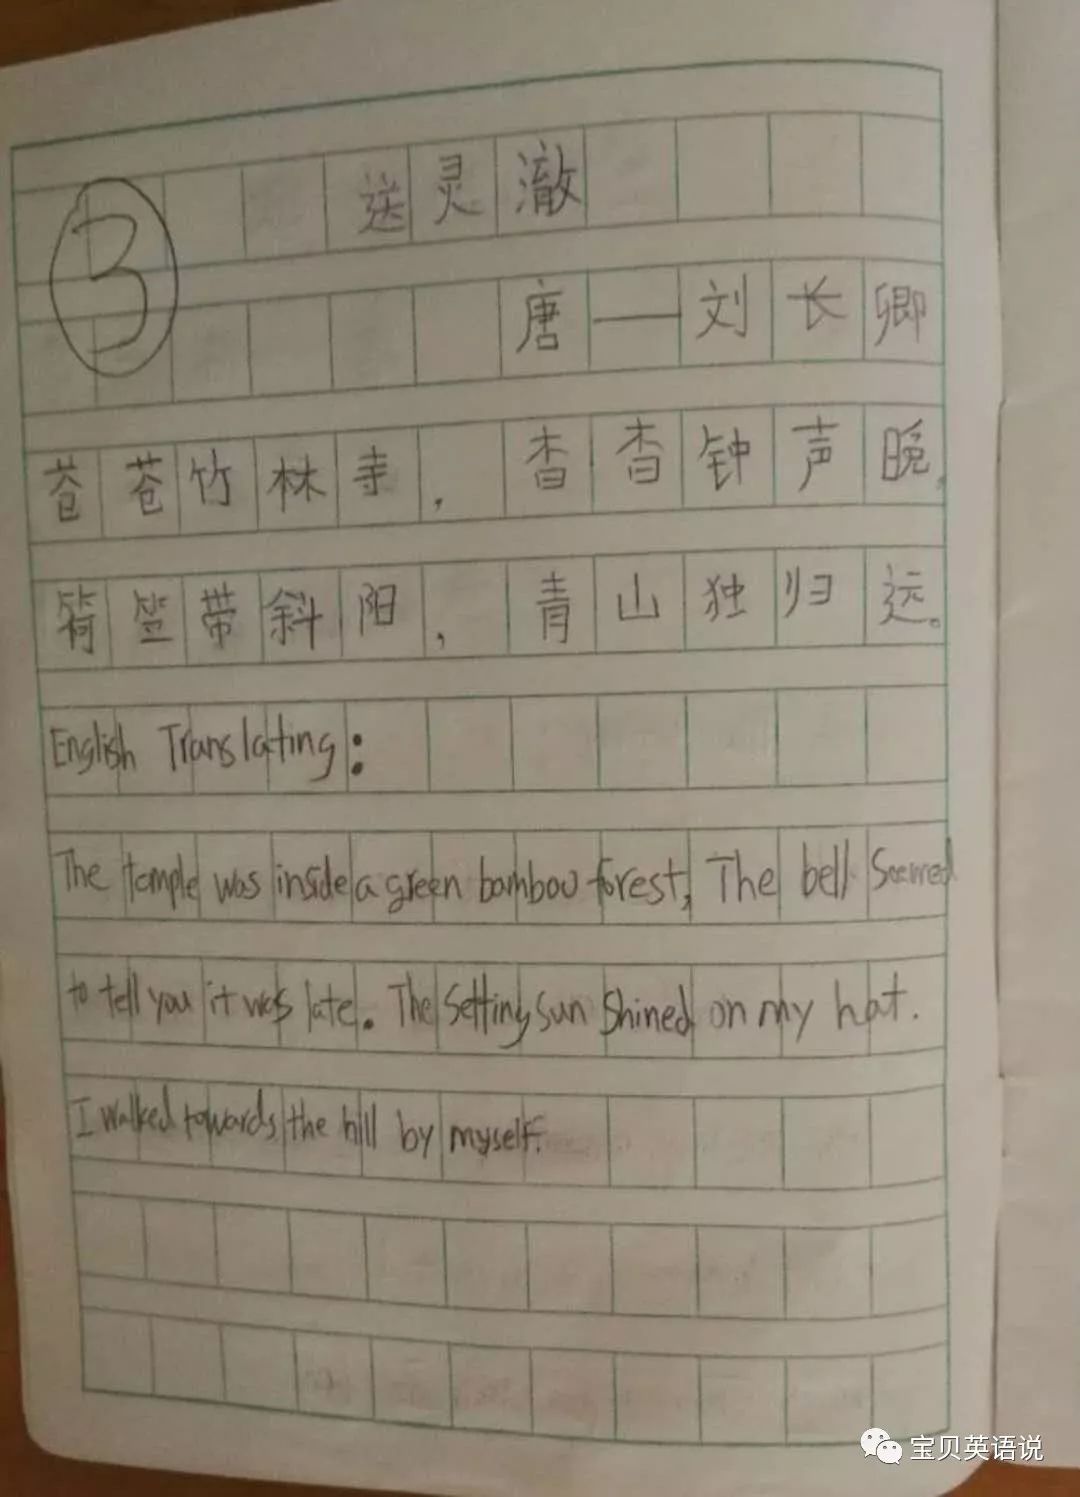 3
送灵澈
唐——刘长卿
苍苍竹林寺，杳杳钟声晚，
荷笠带斜阳，青山独归远。
English Translating:
The temple was inside a green bamboo forest, The bell Seemed
to tell you it was late. The Setting sun Shined on my hat.
I walked towards the hill by myself.
宝贝英语说